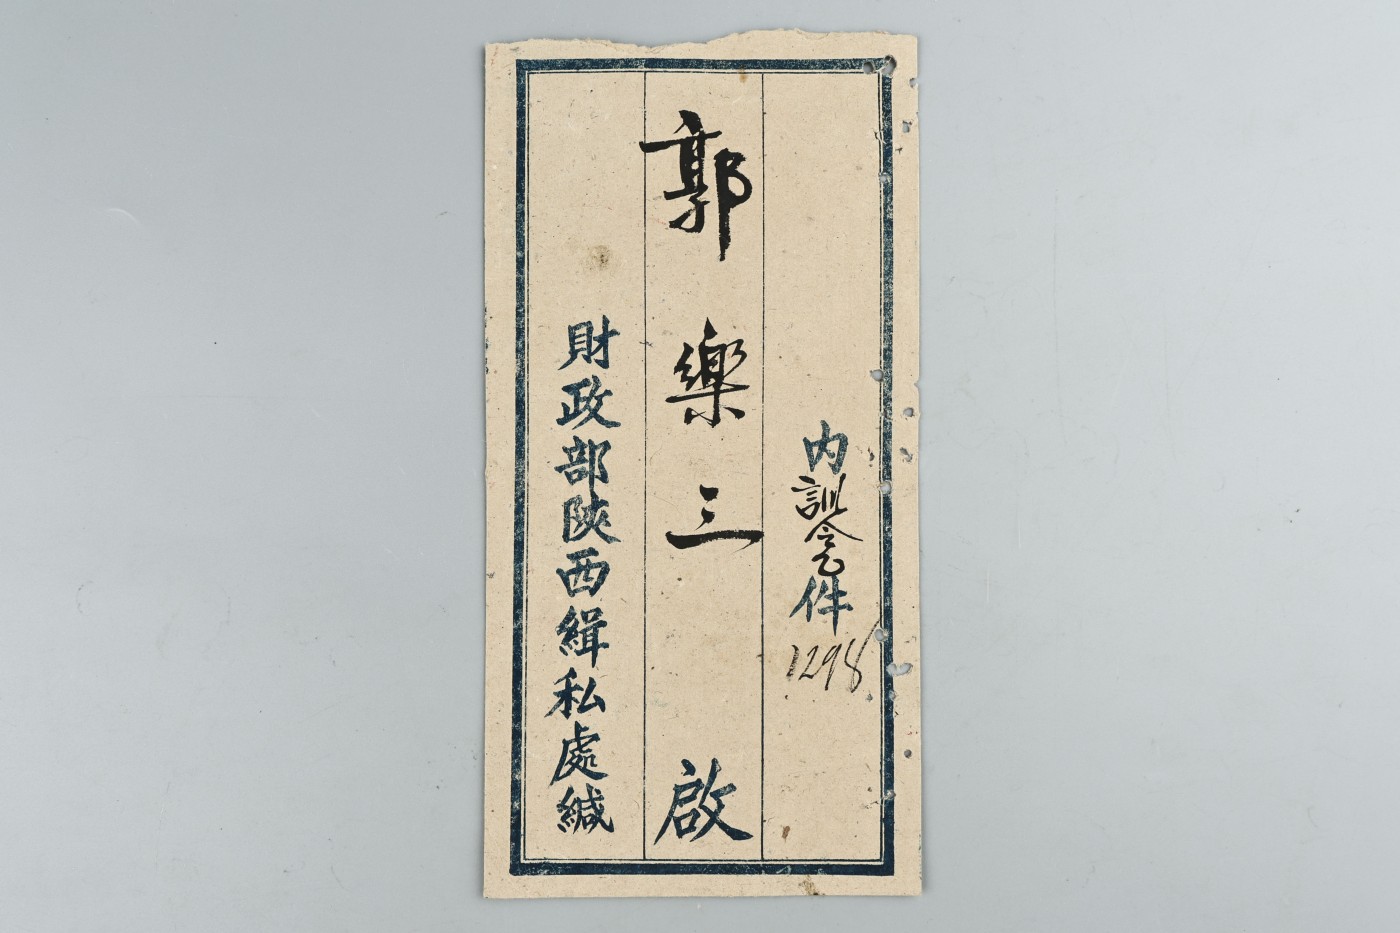 内訓令乙件
1298
郭樂三 啟
財政部陝西緝私處緘